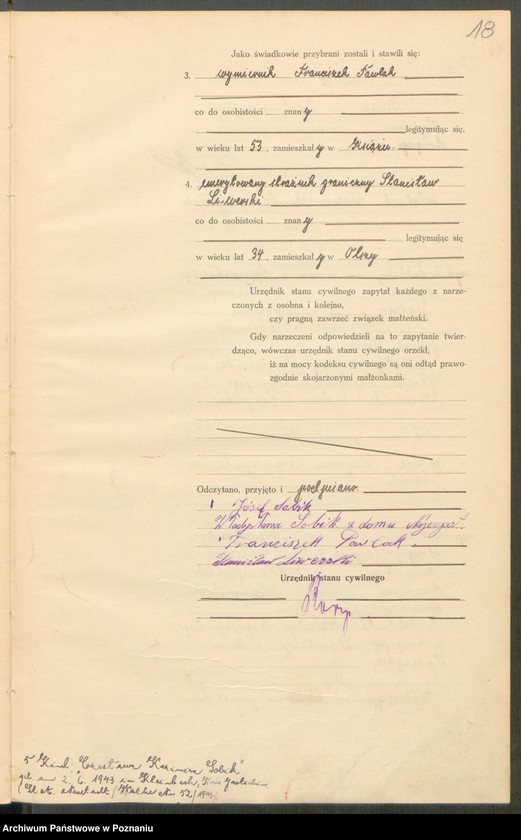 18
Jako świadkowie przybrani zostali i stawili się:
3. wymiernik Franciszek Pawlak
co do osobistości znany
legitymując się,
w wieku lat 53, zamieszkały w Książu.
4. emerytowany strażnik graniczny Stanisław
Liwerski
co do osobistości znany
legitymując się
w wieku lat 34, zamieszkały w Olszy
Urzędnik stanu cywilnego zapytał każdego z narze-
czonych z osobna i kolejno,
czy pragną zawrzeć związek małżeński.
Gdy narzeczeni odpowiedzieli na to zapytanie twier-
dząco, wówczas urzędnik stanu cywilnego orzekł,
iż na mocy kodeksu cywilnego są oni odtąd prawo-
zgodnie skojarzonymi małżonkami.
Odczytano, przyjęto i podpisano.
Józef Sobik
Sobik z domu
Franciszek Pawlak
Stanisław Liwerski
Urzędnik stanu cywilnego
5 Kind. Czesława Kazimiera Sobik
geb. am 2. 6. 1943 in Kleinbach, Kreis
Nr. 52/1943
Archiwum Państwowe w Poznaniu